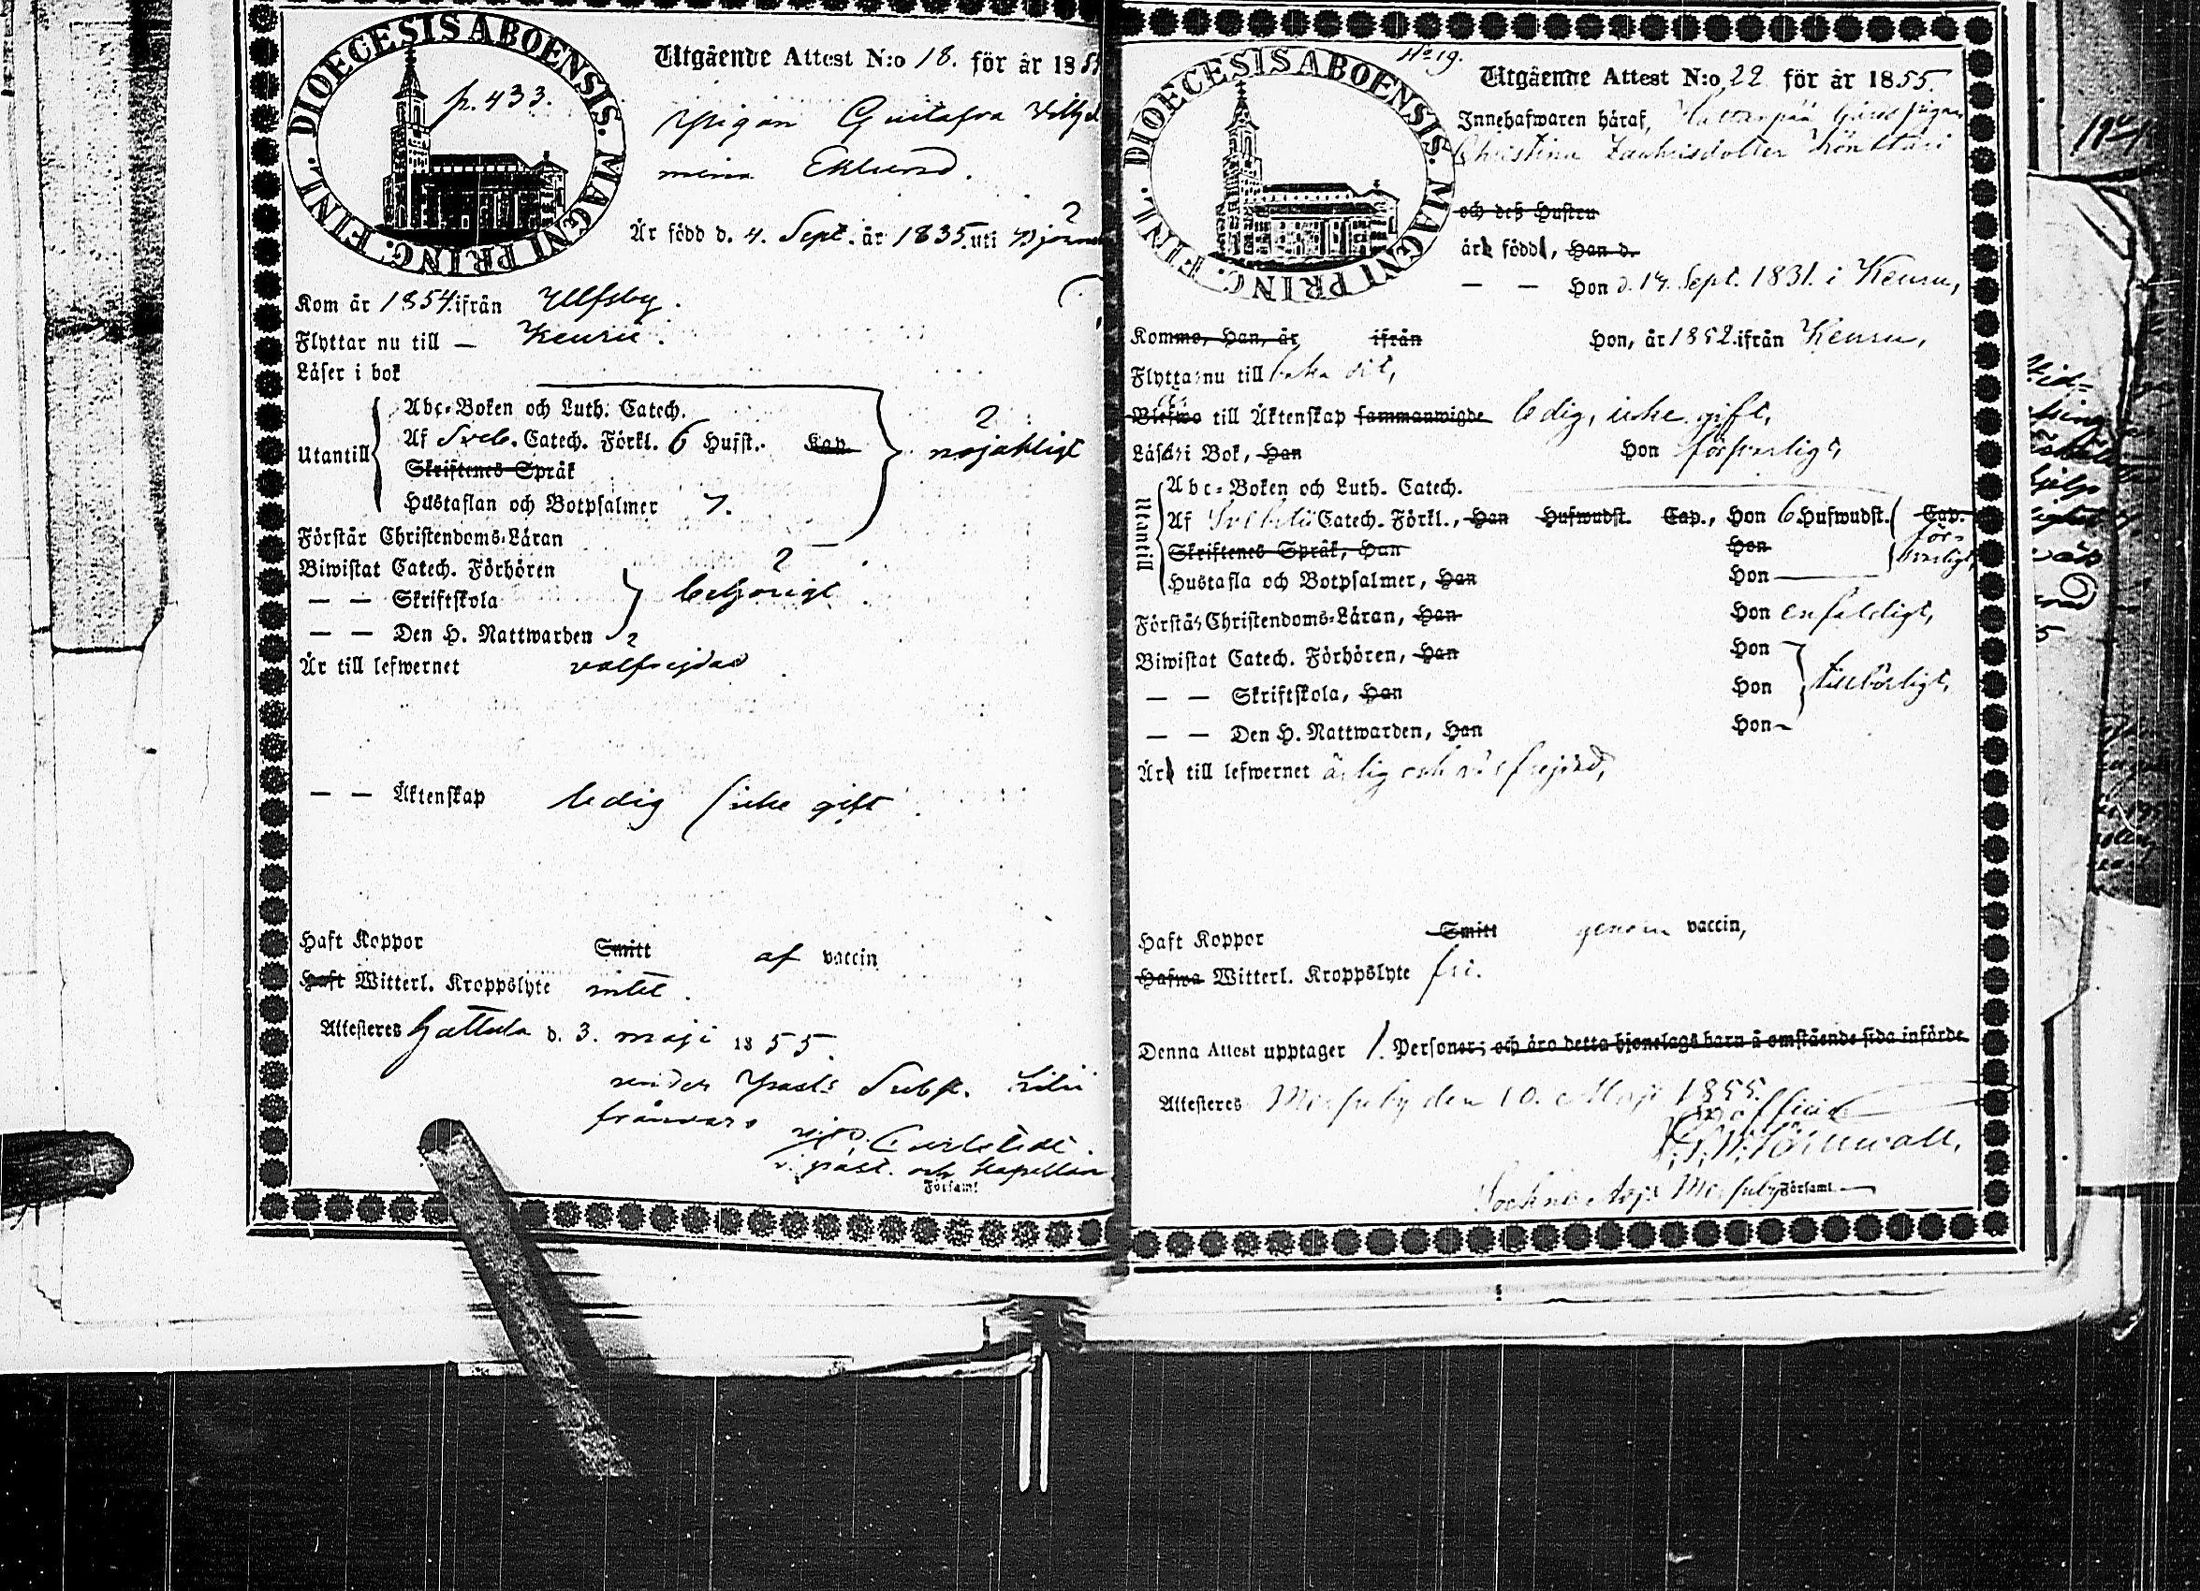 DIOECESIS ABOENSIS. MAGNI PRING. FINL.
p. 433.
Utgående Attest N:o 18. för år 185
Pigan Gustafva Vilhel
mina Eklund.
Är född d. 4. Sept. år 1835 uti Björne
Kom år 1854 ifrån Ulfsby.
Flyttar nu till — Keuru.
Läser i bok
Utantill
Abc-Boken och Luth. Catech.
Af Sveb. Catech. Förkl. 6 Hufst. Kap.
nöjaktligt
Skriftenes Språk
Hustaflan och Botpsalmer 7.
Förstår Christendoms-Läran
Biwistat Catech. Förhören
— — Skriftskola
behörigt
— — Den H. Nattwarden
Är till lefwernet välfrejdad
— — Äktenskap ledig icke gift
Haft Koppor Smitt af vaccin
Haft Witterl. Kroppslyte intet.
Attesteres Hattula d. 3. maji 1855.
under Past:s Subst.
frånvaro
Carlstedt.
v. past. och kapellan
Församl
No 19.
DIOECESIS ABOENSIS. MAGNI PRING. FINL.
Utgående Attest N:o 22 för år 1855.
Innehafwaren häraf, Hattanpää Gårds pigan
Christina Zachrisdotter
och deß Hustru
är född, Han d.
— — Hon d. 14. Sept. 1831. i Keuru,
Kommo, Han, år ifrån Hon, år 1852 ifrån Keuru,
Flyttar nu till baka dit,
Blefwo till Äktenskap sammanwigde ledig, icke gift,
Läser i Bok, Han Hon försvarligt,
Utantill
Abc-Boken och Luth. Catech.
Af Svebelii Catech. Förkl., Han Hufwudst. Cap., Hon 6 Hufwudst. Cap.
för-
svarligt,
Skriftenes Språk, Han Hon
Hustafla och Botpsalmer, Han Hon
Förstår Christendoms-Läran, Han Hon enfaldigt,
Biwistat Catech. Förhören, Han Hon
— — Skriftskola, Han Hon tillbörligt,
— — Den H. Nattwarden, Han Hon
Är till lefwernet ärlig och välfrejdad,
Haft Koppor Smitt genom vaccin,
Hafwa Witterl. Kroppslyte fri.
Denna Attest upptager 1. Personer; och äro detta hjonelags barn å omstående sida införde
Attesteres Messuby den 10. Maji 1855.
Ex officio
Törnwall,
Sockne Adj: i Messuby Församl.